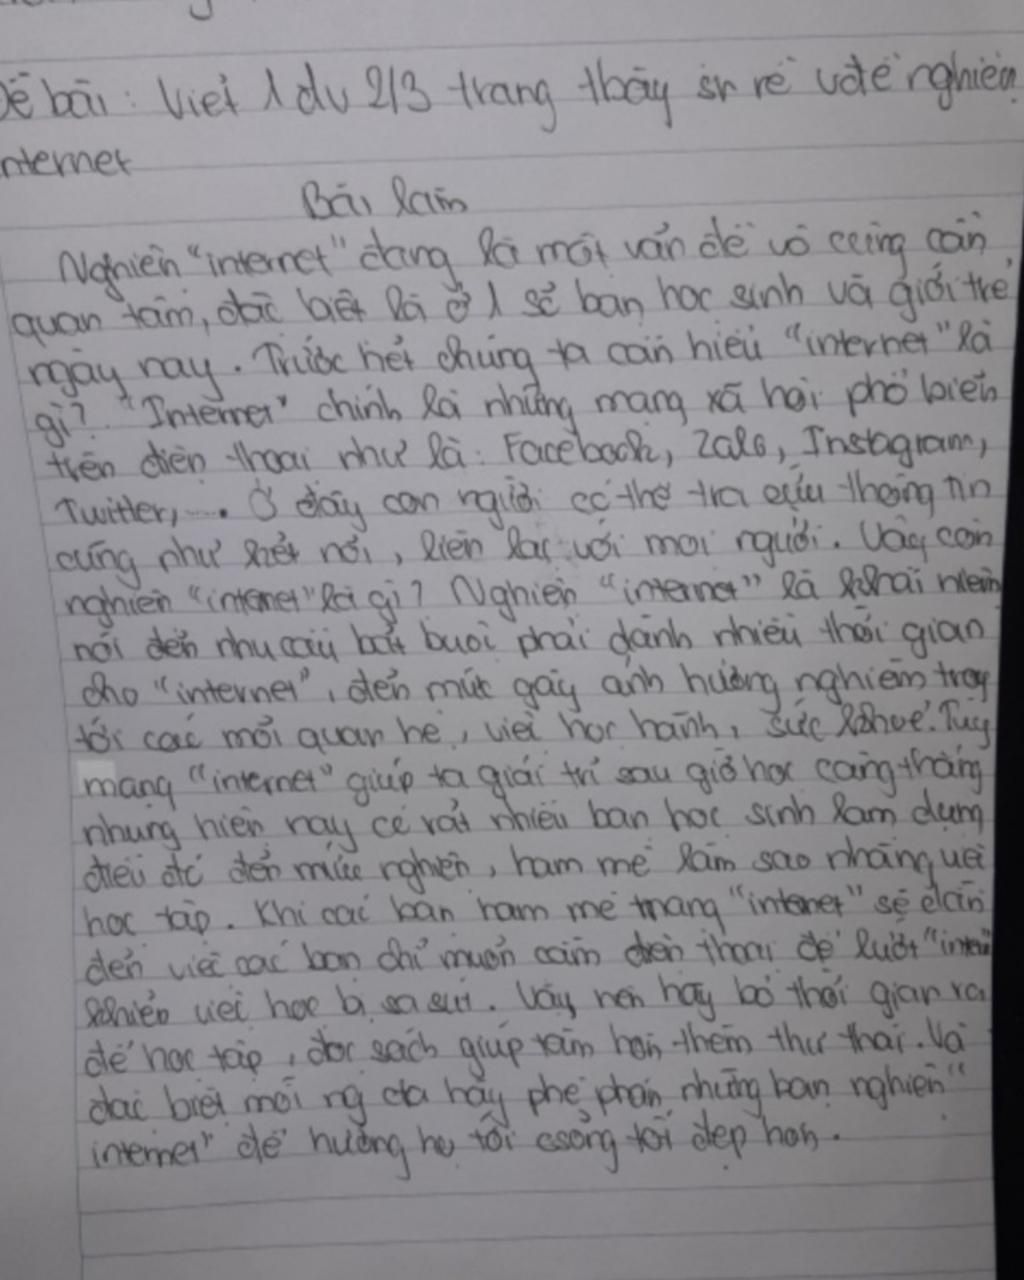 Đề bài: Viết 1 đv 2/3 trang thầy sn về vđề nghiện
internet
Bài làm
Nghiện "internet" đang là một vấn đề vô cùng cần
quan tâm, đặc biệt là ở 1 số bạn học sinh và giới trẻ
ngày nay. Trước hết chúng ta cần hiểu "internet" là
gì? "Internet" chính là những mạng xã hội phổ biến
trên điện thoại như là: Facebook, Zalo, Instagram,
Twitter,.... Ở đây con người có thể tra cứu thông tin
cũng như kết nối, liên lạc với mọi người. Vậy còn
nghiện "internet" là gì? Nghiện "internet" là khái niệm
nói đến nhu cầu bắt buộc phải dành nhiều thời gian
cho "internet", đến mức gây ảnh hưởng nghiêm trọng
tới các mối quan hệ, việc học hành, sức khoẻ. Tuy
mạng "internet" giúp ta giải trí sau giờ học căng thẳng
nhưng hiện nay có rất nhiều bạn học sinh lạm dụng
điều đó đến mức nghiện, ham mê làm sao nhãng việc
học tập. Khi các bạn ham mê mạng "internet" sẽ dẫn
đến việc các bạn chỉ muốn cầm điện thoại để lướt
khiến việc học bị sa sút. Vậy nên hãy bỏ thời gian ra
để học tập, đọc sách giúp tâm hồn thêm thư thái. Và
đặc biệt mỗi ng cta hãy phê phán những bạn nghiện "
internet" để hướng họ tới csống tốt đẹp hơn.